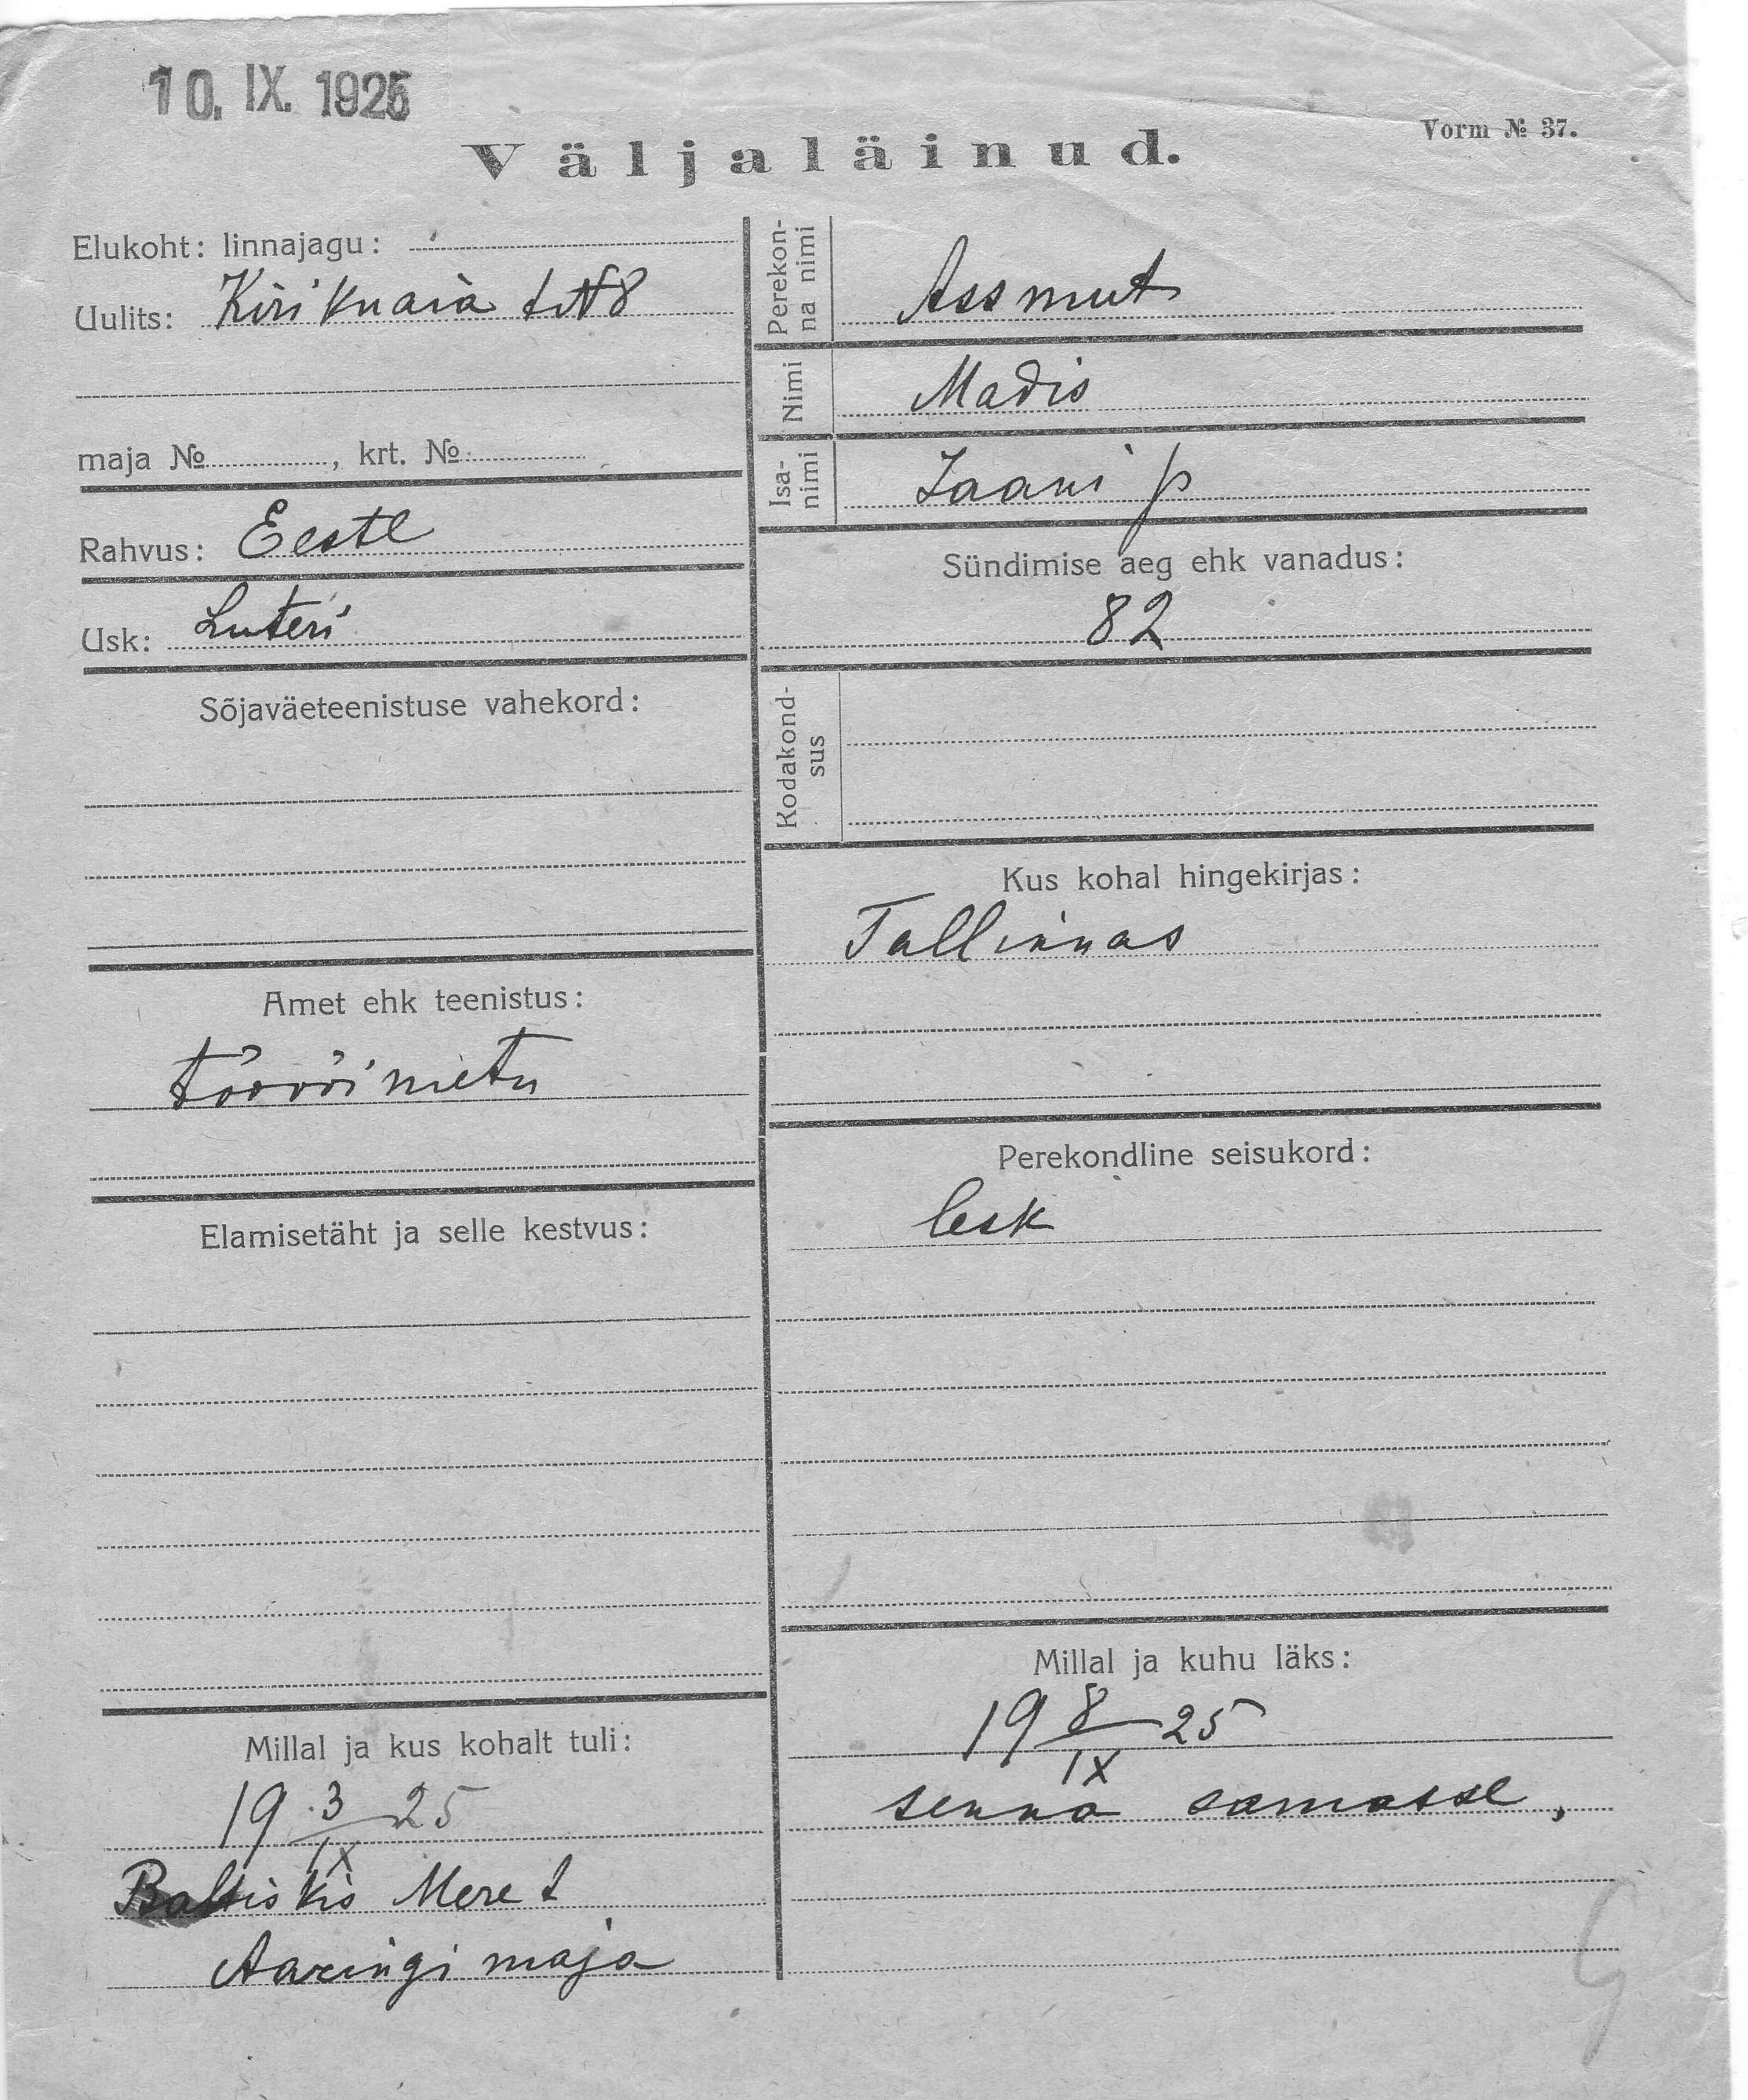 10. IX. 1925
Vorm № 37.
Väljaläinud.
Elukoht: linnajagu:
Uulits: Kirikuaia t № 8
maja №, krt. №
Rahvus: Eestl
Usk: Luteri
Sõjaväeteenistuse vahekord:
Amet ehk teenistus:
töövõimetu
Elamisetäht ja selle kestvus:
Millal ja kus kohalt tuli:
19 3/IX 25
Baltiskis Mere t
maja
Perekon-
na nimi
Assmut
Nimi
Madis
Isa-
nimi
Jaani p
Sündimise aeg ehk vanadus:
82
Kodakond-
sus
Kus kohal hingekirjas:
Tallinnas
Perekondline seisukord:
lesk
Millal ja kuhu läks:
19 8/IX 25
senna samasse,